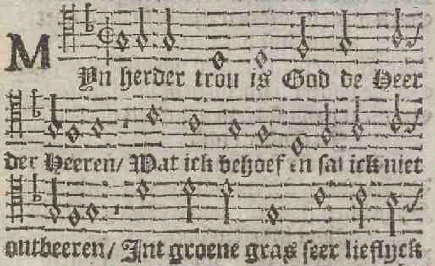 MYn herder trou is God de Heer
der Heeren/ Wat ick behoef en sal ick niet
ontbeeren/ Int groene gras seer lieflyck